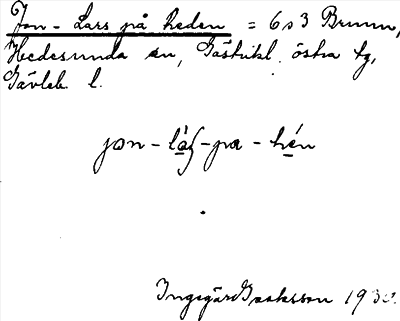 Jon-Lars på heden = 6⁄3 Brunn,
Hedesunda sn, Gästrikl. östra tg,
Gävleb l.
jon - lа̀ʃ - pa - hén
Ingegärd Isaksson 1930.